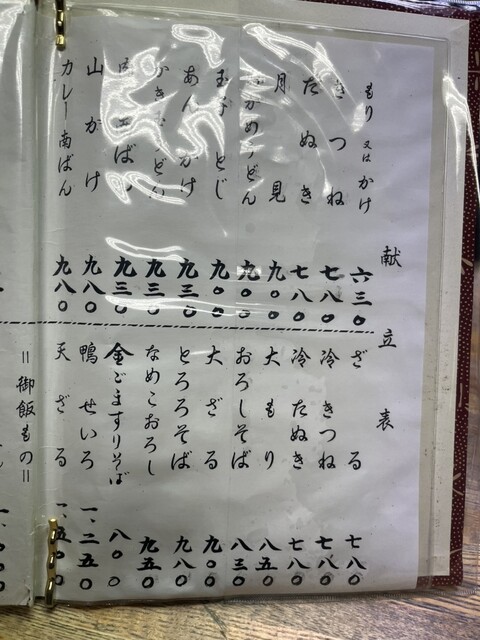 献立表
もり又はかけ 六三〇
きつね 七八〇
たぬき 七八〇
月見 九〇〇
わかめうどん 九〇〇
玉子とじ 九〇〇
あんかけ 九三〇
九三〇
九三〇
山かけ 九八〇
カレー南ばん 九八〇
ざる 七八〇
冷きつね 七八〇
冷たぬき 七八〇
大もり 八五〇
おろしそば 八三〇
大ざる 九〇〇
とろろそば 九八〇
なめこおろし 九五〇
金ごますりそば 八〇〇
鴨せいろ 一、二五〇
天ざる 一、五〇〇
=御飯もの=